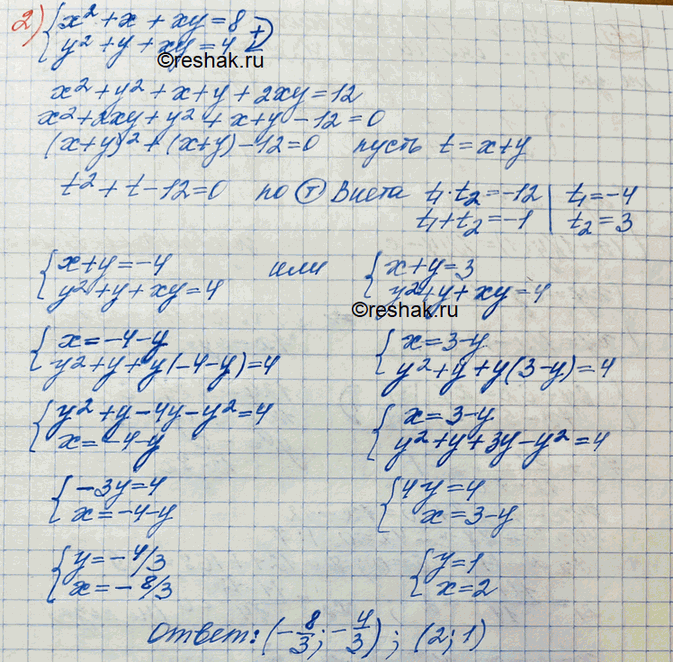 2) { x² + x + xy = 8
{ y² + y + xy = 4 (+)
©reshak.ru
x² + y² + x + y + 2xy = 12
x² + 2xy + y² + x + y - 12 = 0
(x+y)² + (x+y) - 12 = 0 пусть t = x+y
t² + t - 12 = 0 по (т) Виета t₁·t₂ = -12 | t₁ = -4
t₁ + t₂ = -1 | t₂ = 3
{ x + y = -4 или { x + y = 3
{ y² + y + xy = 4 { y² + y + xy = 4
©reshak.ru
{ x = -4 - y { x = 3 - y
{ y² + y + y(-4 - y) = 4 { y² + y + y(3 - y) = 4
{ y² + y - 4y - y² = 4 { x = 3 - y
{ x = -4 - y { y² + y + 3y - y² = 4
{ -3y = 4 { 4y = 4
{ x = -4 - y { x = 3 - y
{ y = -4/3 { y = 1
{ x = -8/3 { x = 2
Ответ: (-8/3; -4/3); (2; 1)